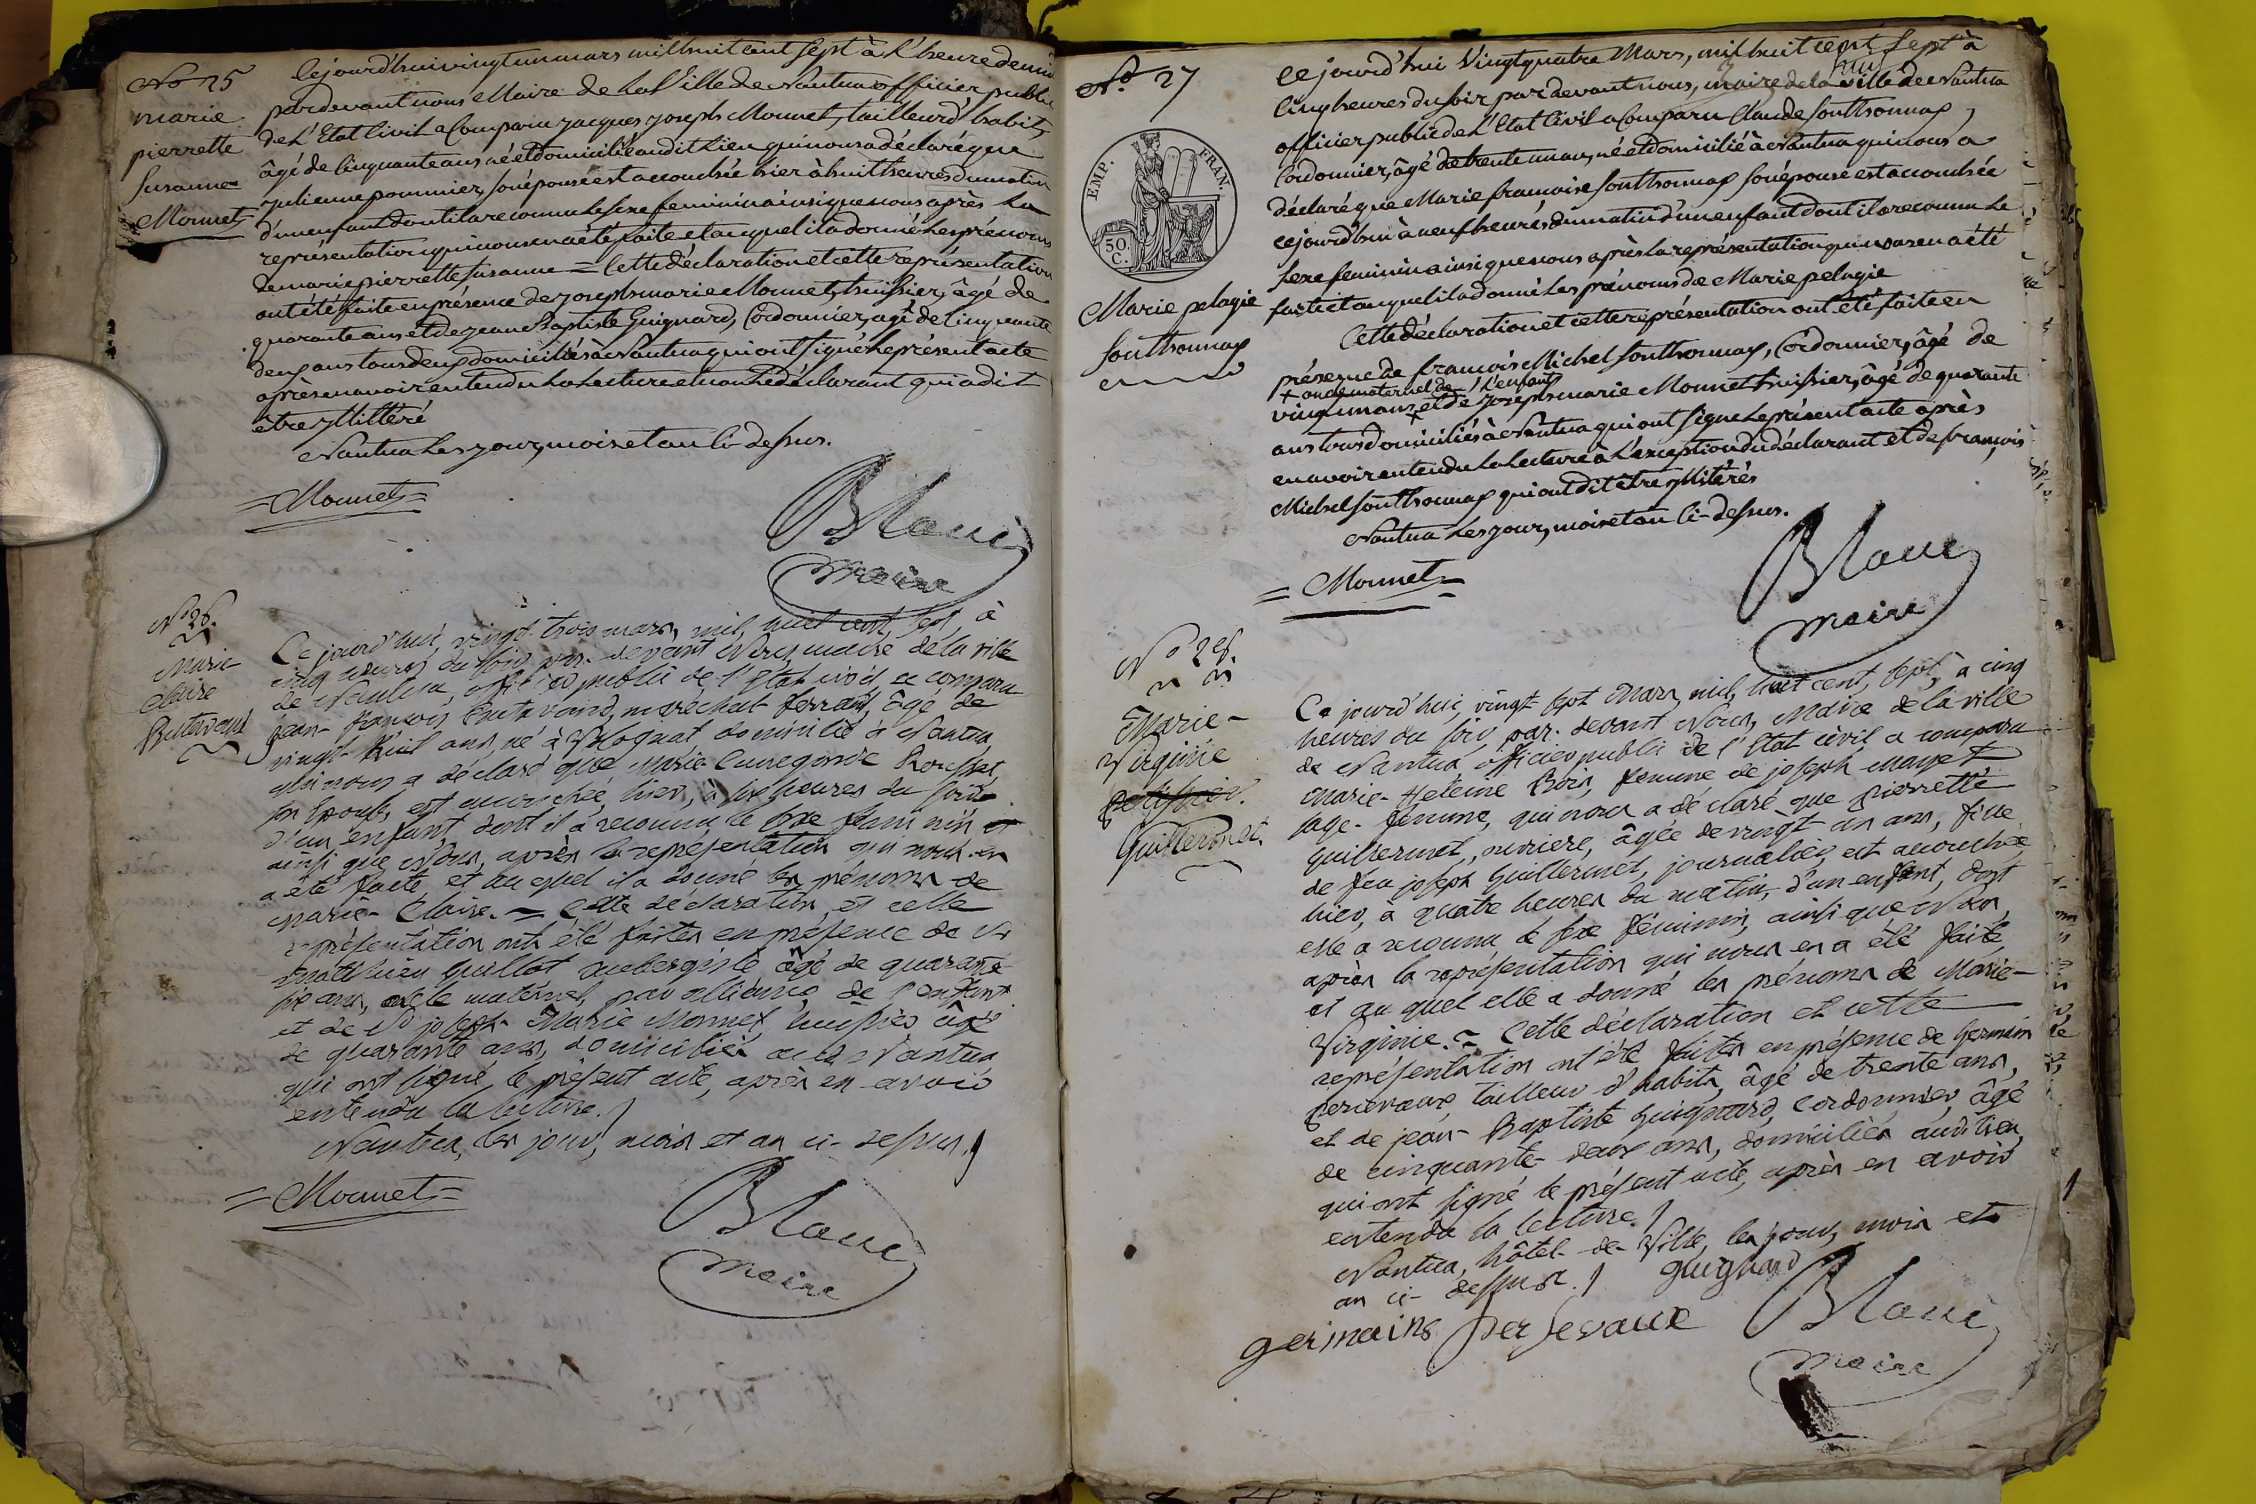 No 25
marie
pierrette
Susanne
Monnet
Cejourd'hui vingt un mars mil huit cent sept à l'heure de midi
pardevant nous Maire de la Ville de Nantua officier public
de l'Etat Civil a Comparu jacques joseph Monnet, tailleur d'habits,
âgé de Cinquante ans né et domicilié audit Lieu qui nous a déclaré que
julienne pommier, son épouse est accouchée hier à huit heures du matin
d'un enfant dont il a reconnu le sexe feminin ainsi que nous après la
représentation qui nous en a été faite et auquel il a donné les prénoms
de marie pierrette Susanne = Cette déclaration et cette représentation
ont été faite en présence de joseph marie Monnet, huissier, âgé de
quarante ans et de jean Baptiste Guignard, Cordonnier, agé de Cinquante
deux ans tous deux domiciliés à Nantua qui ont signé le présent acte
après en avoir entendu la Lecture et non le déclarant qui a dit
être jllitéré
Nantua Les jour, mois et an Ci-dessus.
= Monnet =
Blanc
maire
No 26.
Marie
Claire
Butavand
Ce jourd'hui, vingt-trois mars, mil, huit cent, sept, à
cinq heures du soir, par-devant Nous, maire de la ville
de Nantua, officier public de l'Etat civil, a comparu
jean-françois Butavand, maréchal ferrant, âgé de
vingt-huit ans, né à domicilié à Nantua
qui nous a déclaré que Marie Cunegonde Rousset,
son Epouse, est accouchée, hier, à six heures du soir
d'un enfant, dont il a reconnu le sexe féminin et
ainsi que Nous, après la représentation qui nous en
a été faite, et auquel il a donné les prénoms de
Marie-Claire. = Cette déclaration, et cette
représentation ont été faites en présence de Sr
Matthieu Guillot, aubergiste, âgé de quarante
six ans, oncle maternel, par alliance, de l'enfant
et de Sr joseph-Marie Monnet, huissier âgé
de quarante ans, domiciliés aud. Nantua
qui ont signé, le présent acte, après en avoir
entendu la lecture.
Nantua, les jour, mois et an ci-dessus.
= Monnet =
Blanc
maire
No 27
EMP. FRAN.
50 C.
Marie pelagie
Southonnax
Ce jourd'hui Vingt quatre Mars, mil huit cent Sept à
Cinq heures du soir pardevant nous, maire de la ville de Nantua
officier public de l'Etat Civil a Comparu Claude Southonnax,
Cordonnier, âgé de trente un an, né et domicilié à Nantua qui nous a
déclaré que Marie françoise Southonnax son épouse est accouchée
cejourd'hui à neuf heures du matin d'un enfant dont il a reconnu le
Sexe feminin ainsi que nous après la représentation qui nous en a été
faite et auquel il a donné les prénoms de Marie pelagie
Cette déclaration et cette représentation ont été faite en
présence de françois Michel Southonnax, Cordonnier, âgé de
+ oncle maternel de l'enfant
vingt un ans + et de joseph marie Monnet huissier, âgé de quarante
ans tous domiciliés à Nantua qui ont signé le présent acte après
en avoir entendu la Lecture à l'exception du déclarant et de françois
Michel Southonnax qui ont dit être jllitérés
Nantua Les jour, mois et an Ci-dessus.
= Monnet =
Blanc
maire
No 28.
Marie-
Virginie
Guillermet.
Ce jourd'hui, vingt-sept Mars, mil, huit cent, sept, à cinq
heures du soir par-devant Nous, Maire de la ville
de Nantua officier public de l'Etat civil a comparu
Marie-Heleine Bois, femme de joseph Mayet
sage-femme, qui nous a déclaré que Pierrette
Guillermet, ouvriere, âgée de vingt un ans, fille
de feu joseph Guillermet, journalier, est accouchée
hier, à quatre heures du matin, d'un enfant, dont
elle a reconnu le sexe féminin, ainsi que Nous,
après la représentation qui nous en a été faite
et au quel elle a donné les prénoms de Marie-
Virginie. = Cette déclaration et cette
représentation ont été faites en présence de Germain
Persevaux, tailleur d'habits, âgé de trente ans,
et de jean-Baptiste Guignard, Cordonnier, âgé
de cinquante-deux ans, domiciliés audit lieu,
qui ont signé le présent acte, après en avoir
entendu la lecture.
Nantua, hôtel-de-Ville, les jour, mois et
an ci-dessus.
guignard
germains persevaux
Blanc
maire